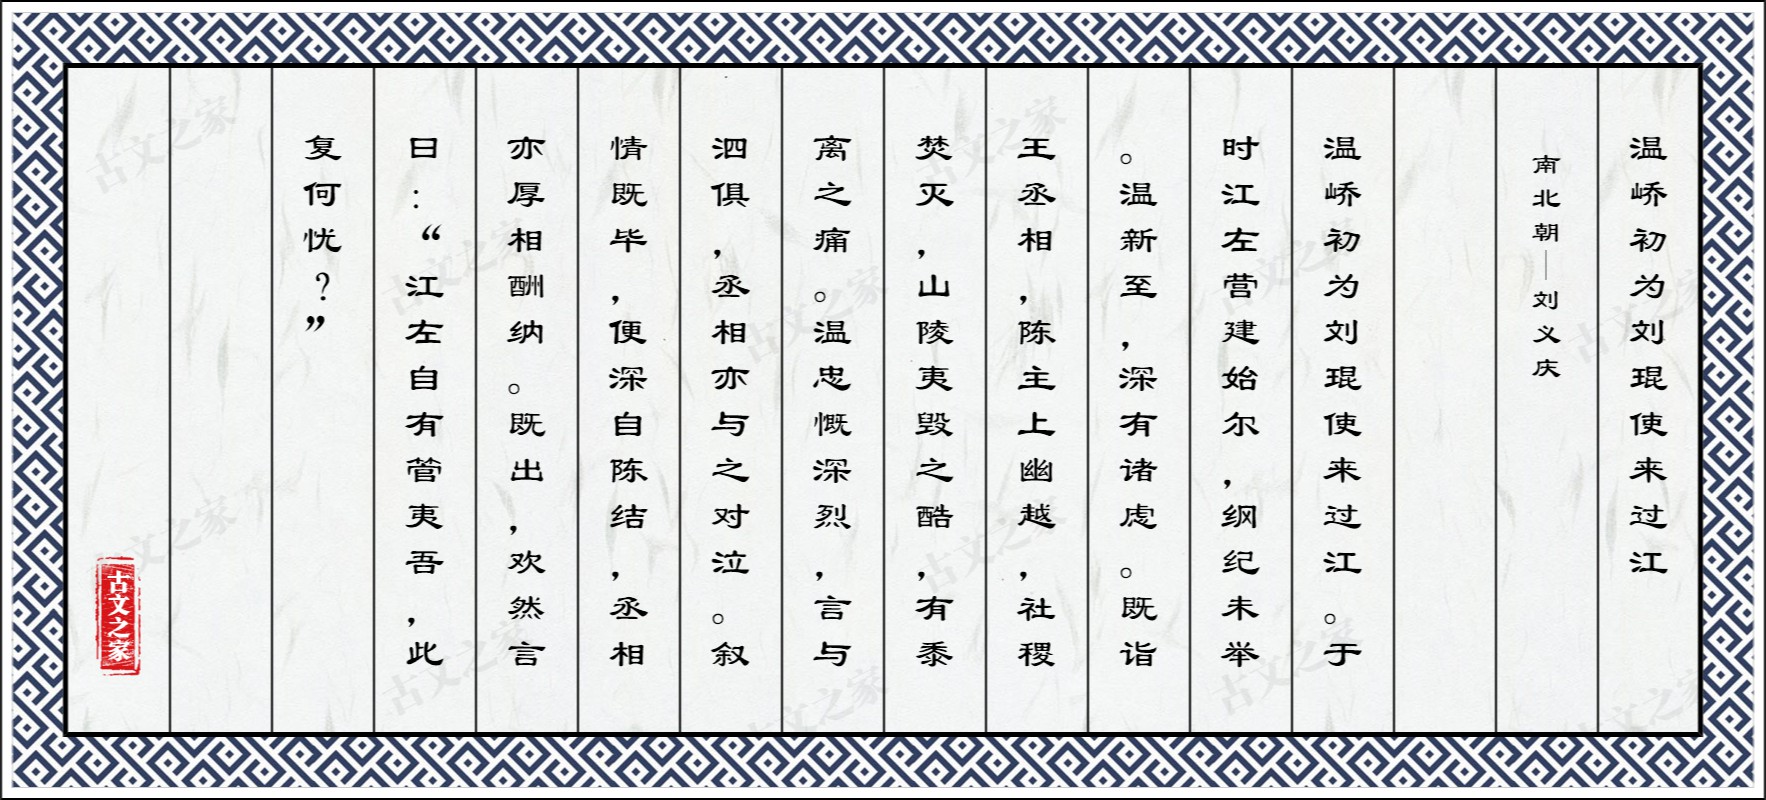 温峤初为刘琨使来过江
南北朝—刘义庆
温峤初为刘琨使来过江。于
时江左营建始尔，纲纪未举
。温新至，深有诸虑。既诣
王丞相，陈主上幽越，社稷
焚灭，山陵夷毁之酷，有黍
离之痛。温忠慨深烈，言与
泗俱，丞相亦与之对泣。叙
情既毕，便深自陈结，丞相
亦厚相酬纳。既出，欢然言
曰：“江左自有管夷吾，此
复何忧？”
古文之家